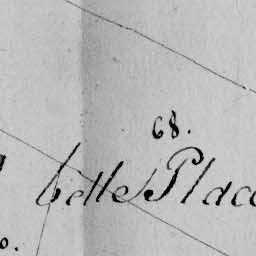 68.
belle Plac
o.